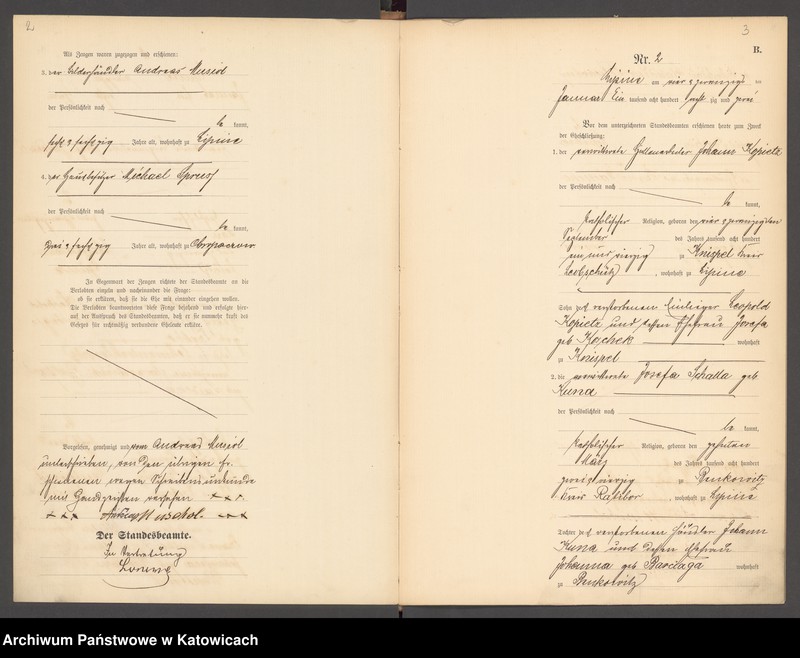 2
Als Zeugen waren zugezogen und erschienen:
3. der Bilderhändler Andreas Musiol
der Persönlichkeit nach
be kannt,
sechs & sechszig Jahre alt, wohnhaft zu Lipine
4. der Hausbesitzer Michael
der Persönlichkeit nach
be kannt,
drei & sechszig Jahre alt, wohnhaft zu Chropaczow
In Gegenwart der Zeugen richtete der Standesbeamte an die
Verlobten einzeln und nacheinander die Frage:
ob sie erklären, daß sie die Ehe mit einander eingehen wollen.
Die Verlobten beantworteten diese Frage bejahend und erfolgte hier-
auf der Ausspruch des Standesbeamten, daß er sie nunmehr kraft des
Gesetzes für rechtmäßig verbundene Eheleute erkläre.
Vorgelesen, genehmigt und vom Andreas Musiol
unterschrieben, von den übrigen Er-
schienenen wegen Schreibensunkunde
mit Handzeichen versehen + + +
+ + + + + +
Der Standesbeamte.
In Vertretung
3
B.
Nr. 2
Lipine am vier & zwanzigsten
Januar Ein tausend acht hundert zig und zwei
Vor dem unterzeichneten Standesbeamten erschienen heute zum Zweck
der Eheschließung:
1. der verwittwete Hüttenarbeiter Johann Kopietz
der Persönlichkeit nach
be kannt,
katholischer Religion, geboren den vier & zwanzigsten
September des Jahres tausend acht hundert
ein und vierzig zu Knispel Kreis
Leobschütz, wohnhaft zu Lipine
Sohn des verstorbenen Einlieger Leopold
Kopietz und dessen Ehefrau Josefa
geb Koschek wohnhaft
zu Knispel
2. die verwittwete Josefa Schalla geb.
Kuna
der Persönlichkeit nach
be kannt,
katholischer Religion, geboren den zehnten
März des Jahres tausend acht hundert
zwei & vierzig zu Benkowitz
Kreis Ratibor, wohnhaft zu Lipine
Tochter des verstorbenen Händler Johann
Kuna und dessen Ehefrau
Johanna geb wohnhaft
zu Benkowitz
Archiwum Państwowe w Katowicach